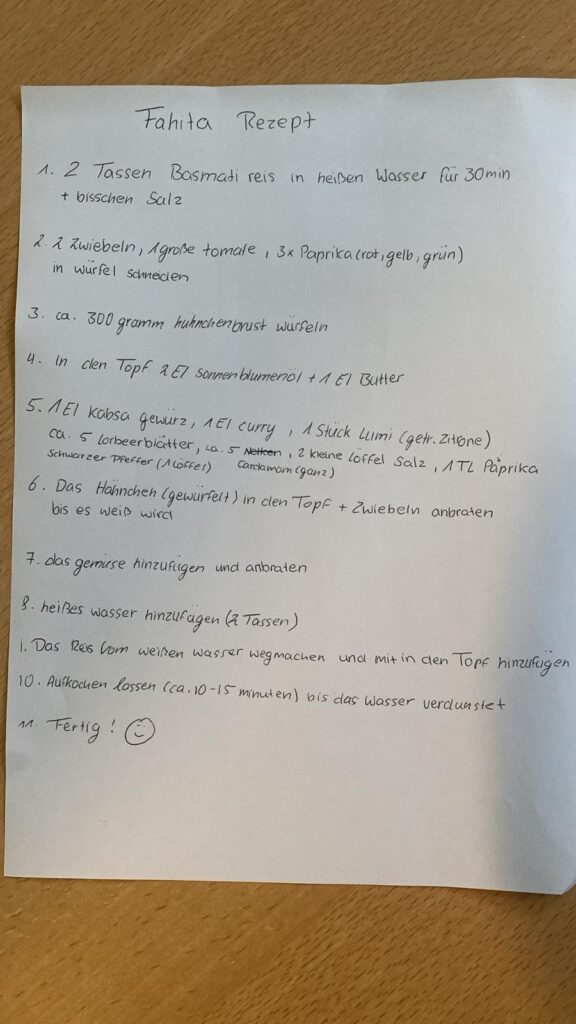 Fahita Rezept
1. 2 Tassen Basmati reis in heißen Wasser für 30min
+ bisschen Salz
2. 2 Zwiebeln, 1 große tomate, 3x Paprika (rot, gelb, grün)
in würfel schneiden
3. ca. 300 gramm huhnchenbrust würfeln
4. In den Topf 2 El Sonnenblumenöl + 1 El Butter
5. 1 El Kabsa gewürz, 1 El curry, 1 Stück Lumi (getr. Zitone)
ca. 5 Lorbeerblätter, ca. 5 Nelken, 2 kleine löffel Salz, 1 TL Paprika
Schwarzer Pfeffer (1 löffel) Cardamom (ganz)
6. Das Hähnchen (gewürfelt) in den Topf + Zwiebeln anbraten
bis es weiß wird
7. das gemüse hinzufügen und anbraten
8. heißes wasser hinzufügen (2 Tassen)
9. Das Reis vom weißen wasser wegmachen und mit in den Topf hinzufügen
10. Aufkochen lassen (ca. 10-15 minuten) bis das Wasser verdunstet
11. Fertig!